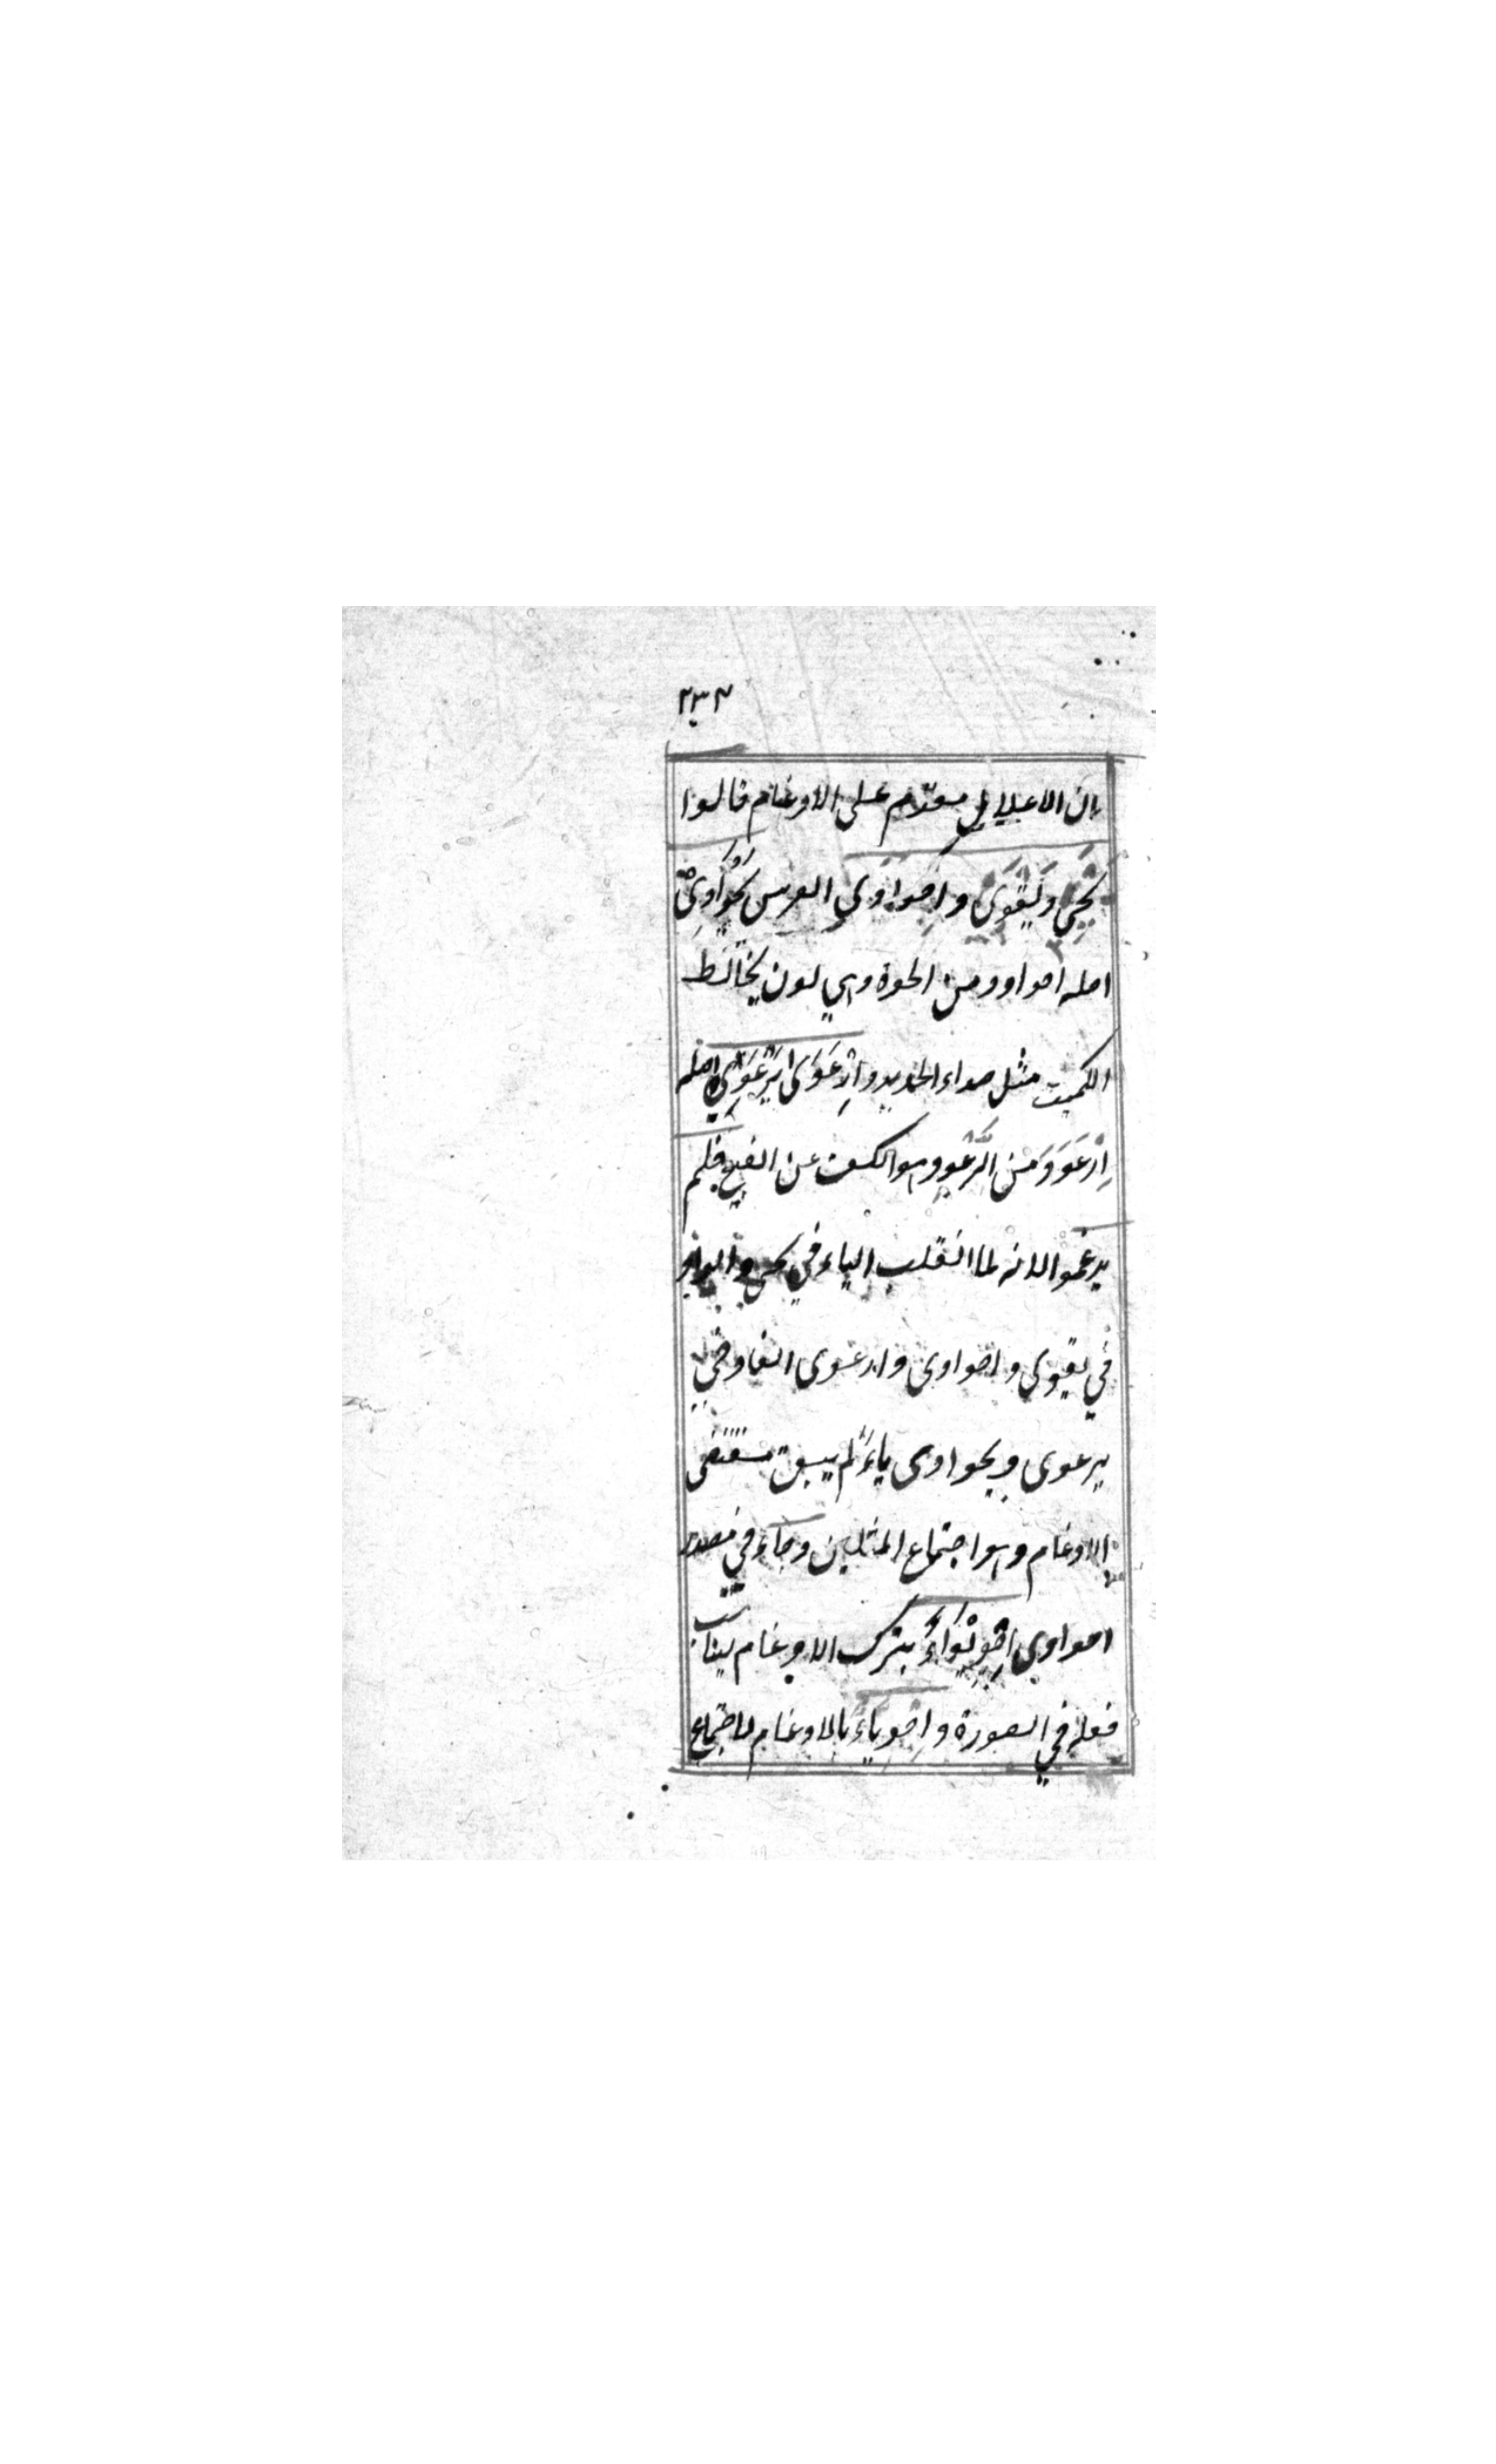 ٢٣٤
بان الاعلال مقدم على الادغام قالوا
يَحْيٰى ويَقْوٰى واحواوى الفرس يَحْواوِىْ
اصله احواوو من الحوة وهي لون يخالط
الكميت مثل صداء الحديد وارْعَوَى يَرْعَوِي اصله
اِرْعَوَوَ مِن الرَّعْوِ وهو الكف عن القبيح فلم
يدغموا لانه لما انقلب الياء في يحيى والواو
في يقوى واحواوى وارعوى الفا وفي
يرعوى ويحواوى ياءً لم يبق مقتضى
الادغام وهو اجتماع المثلين وجاء في مصدر
احواوى اِحْوِيْوَاءٌ بترك الادغام ليناسب
فعله في الصورة واحوياءٌ بالادغام لاجتماع